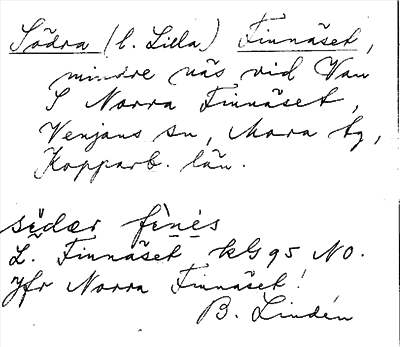 Södra (l. Lilla) Finnäset,
mindre näs vid Van
S Norra Finnäset,
Venjans sn, Mora tg,
Kopparb. län.
södær fìnés
L. Finnäset kbl 95 NO.
Jfr Norra Finnäset!
B. Lindén